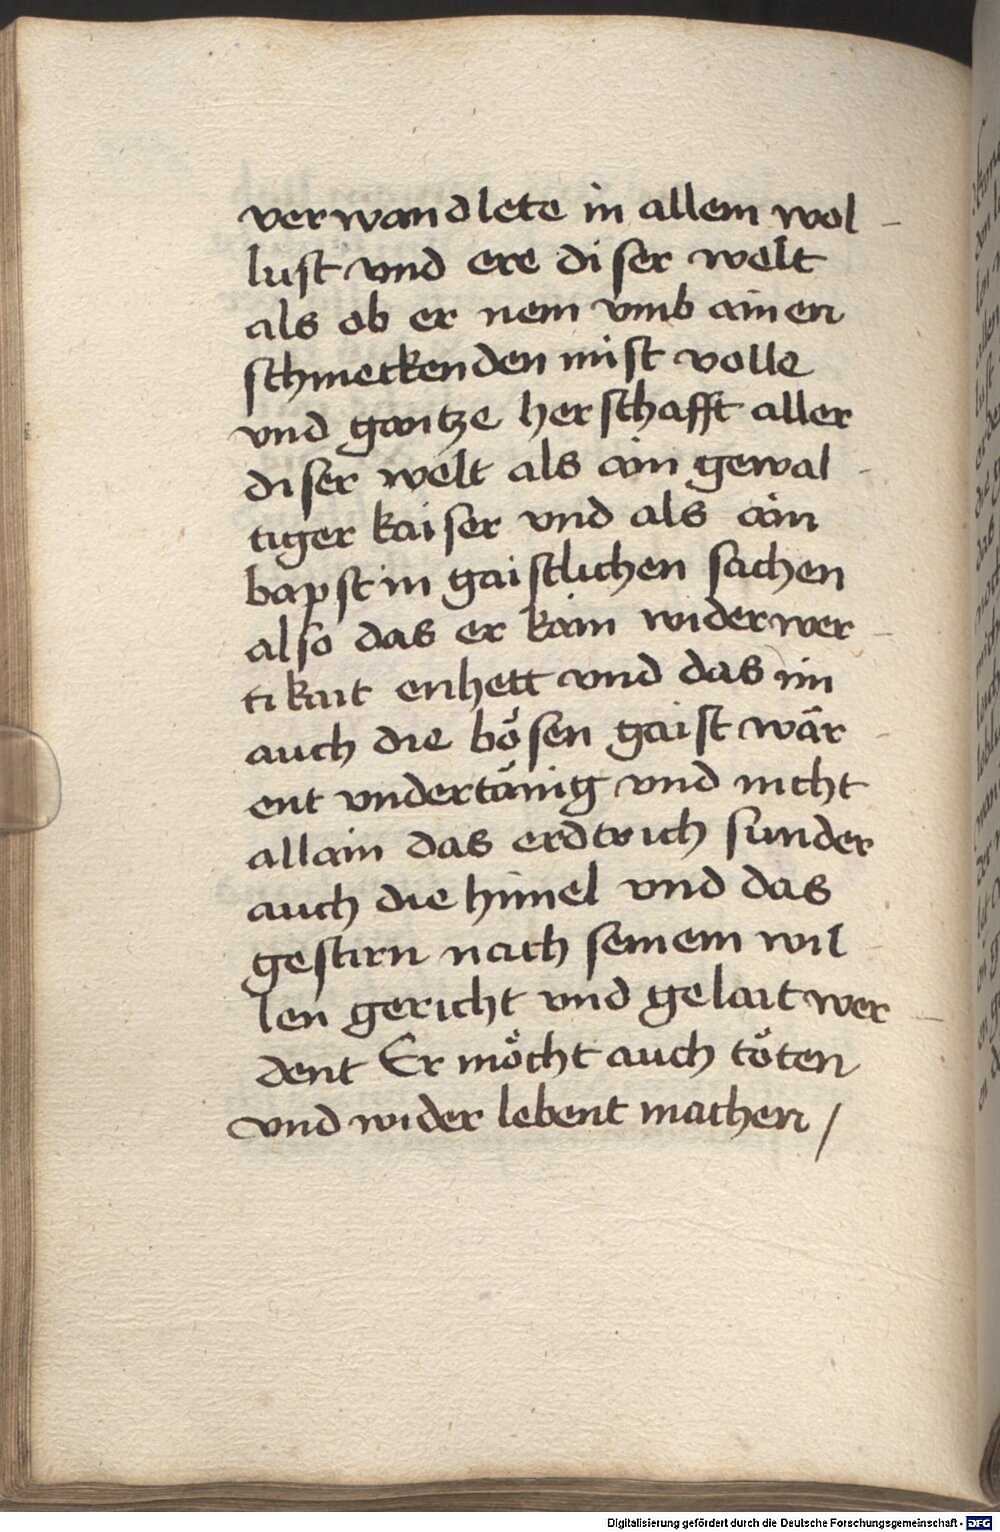 verwandlete in allem wol-
lust vnd ere diser welt
als ob er nem vmb ainen
schmeckenden mist volle
vnd gantze herschafft aller
diser welt als ain gewal-
tiger kaiser vnd als ain
bapst in gaistlichen sachen
also das er kain widerwer-
tikait enhett vnd das im
auch die bösen gaist wär-
ent vndertänig vnd nicht
allain das erdtrich sunder
auch die himel vnd das
gestirn nach seinem wil-
len gericht vnd gelait wer-
dent Er möcht auch töten
vnd wider lebent machen /
Digitalisierung gefördert durch die Deutsche Forschungsgemeinschaft - DFG